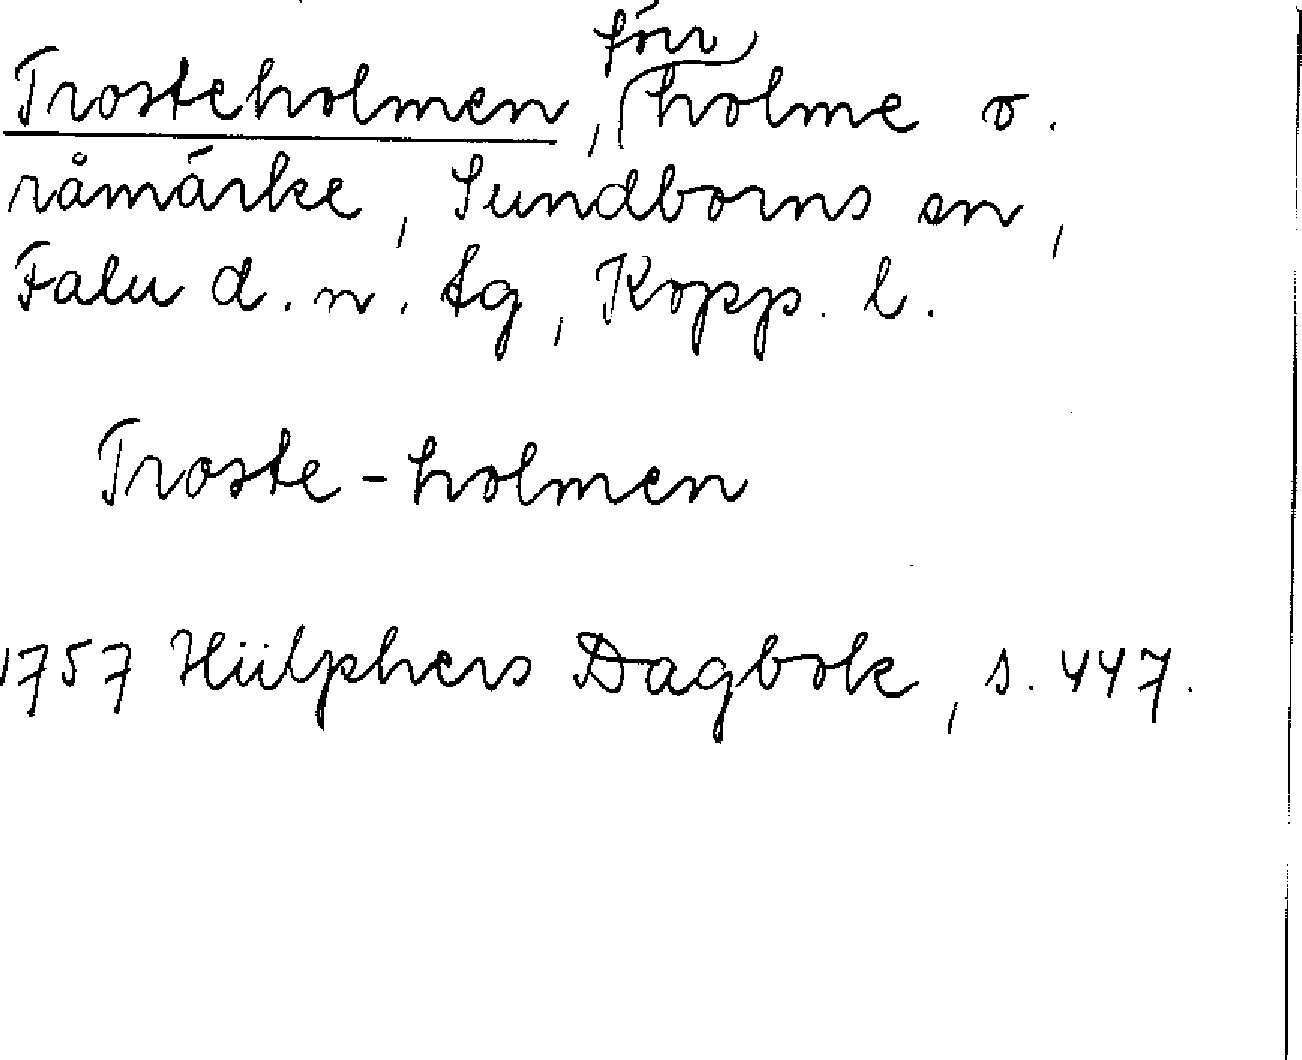 Trosteholmen, förr holme o.
råmärke, Sundborns sn,
Falu d. n. tg, Kopp. l.
Troste-holmen
1757 Hülphers Dagbok, s. 447.